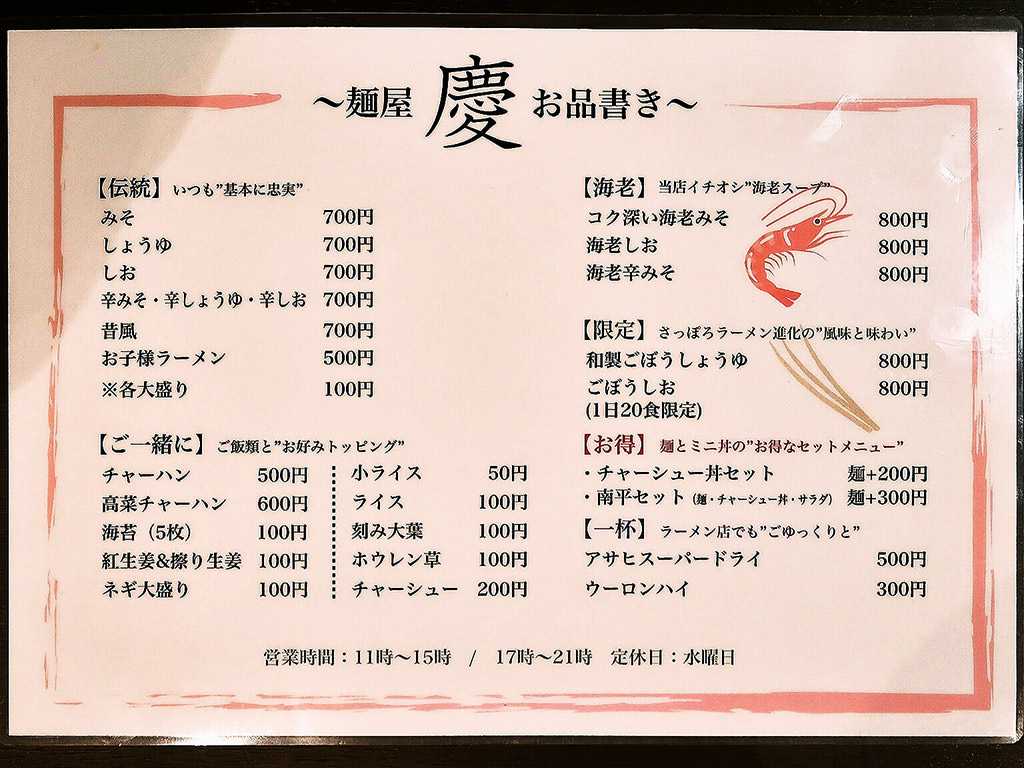 〜麺屋 慶 お品書き〜
【伝統】いつも"基本に忠実"
みそ 700円
しょうゆ 700円
しお 700円
辛みそ・辛しょうゆ・辛しお 700円
昔風 700円
お子様ラーメン 500円
※各大盛り 100円
【ご一緒に】ご飯類と"お好みトッピング"
チャーハン 500円
高菜チャーハン 600円
海苔（5枚） 100円
紅生姜&擦り生姜 100円
ネギ大盛り 100円
小ライス 50円
ライス 100円
刻み大葉 100円
ホウレン草 100円
チャーシュー 200円
【海老】当店イチオシ"海老スープ"
コク深い海老みそ 800円
海老しお 800円
海老辛みそ 800円
【限定】さっぽろラーメン進化の"風味と味わい"
和製ごぼうしょうゆ 800円
ごぼうしお 800円
(1日20食限定)
【お得】麺とミニ丼の"お得なセットメニュー"
・チャーシュー丼セット 麺+200円
・南平セット（麺・チャーシュー丼・サラダ） 麺+300円
【一杯】ラーメン店でも"ごゆっくりと"
アサヒスーパードライ 500円
ウーロンハイ 300円
営業時間：11時〜15時 / 17時〜21時 定休日：水曜日